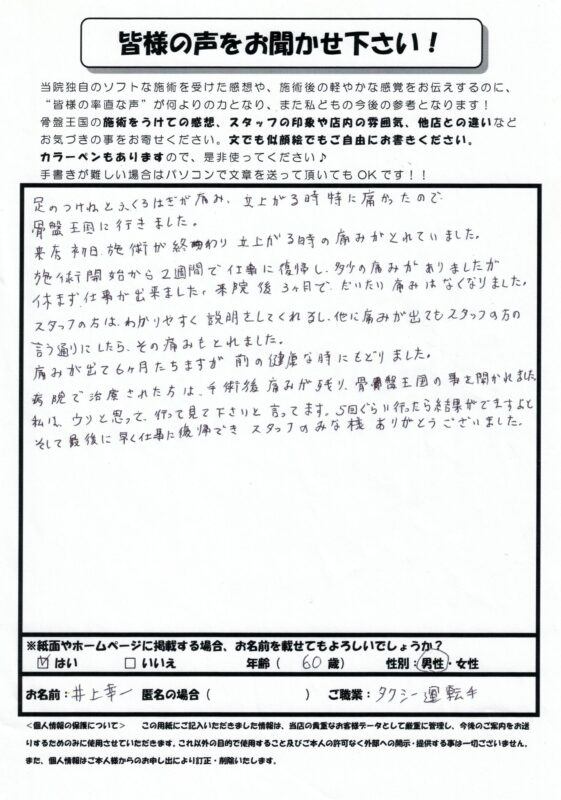 皆様の声をお聞かせ下さい！
当院独自のソフトな施術を受けた感想や、施術後の軽やかな感覚をお伝えするのに、
“皆様の率直な声”が何よりの力となり、また私どもの今後の参考となります！
骨盤王国の施術をうけての感想、スタッフの印象や店内の雰囲気、他店との違いなど
お気づきの事をお寄せください。文でも似顔絵でもご自由にお書きください。
カラーペンもありますので、是非使ってください♪
手書きが難しい場合はパソコンで文章を送って頂いてもOKです！！
足のつけねとふくらはぎが痛み、立上がる時特に痛かったので
骨盤王国に行きました。
来店初日施術が終わり立上がる時の痛みがとれていました。
施術開始から2週間で仕事に復帰し、多少の痛みがありましたが
休まず仕事が出来ました。来院後3ヶ月で、だいたい痛みはなくなりました。
スタッフの方は、わかりやすく説明をしてくれるし、他に痛みが出てもスタッフの方の
言う通りにしたら、その痛みもとれました。
痛みが出て6ヶ月たちますが前の健康な時にもどりました。
病院で治療された方は、手術後痛みが残り、骨盤王国の事を聞かれました。
私は、ウソと思って、行って見て下さいと言ってます。5回ぐらい行ったら結果がでますよと
そして最後に早く仕事に復帰でき スタッフのみな様 ありがとうございました。
※紙面やホームページに掲載する場合、お名前を載せてもよろしいでしょうか？
☑ はい □ いいえ 年齢（ 60 歳） 性別：男性・女性
お名前：井上幸一 匿名の場合（ ） ご職業：タクシー運転手
＜個人情報の保護について＞ この用紙にご記入いただきました情報は、当店の貴重なお客様データとして厳重に管理し、今後のご案内をお送
りするためのみに使用させていただきます。これ以外の目的で使用すること及びご本人の許可なく外部への開示・提供する事は一切ございません。
また、個人情報はご本人様からのお申し出により訂正・削除いたします。